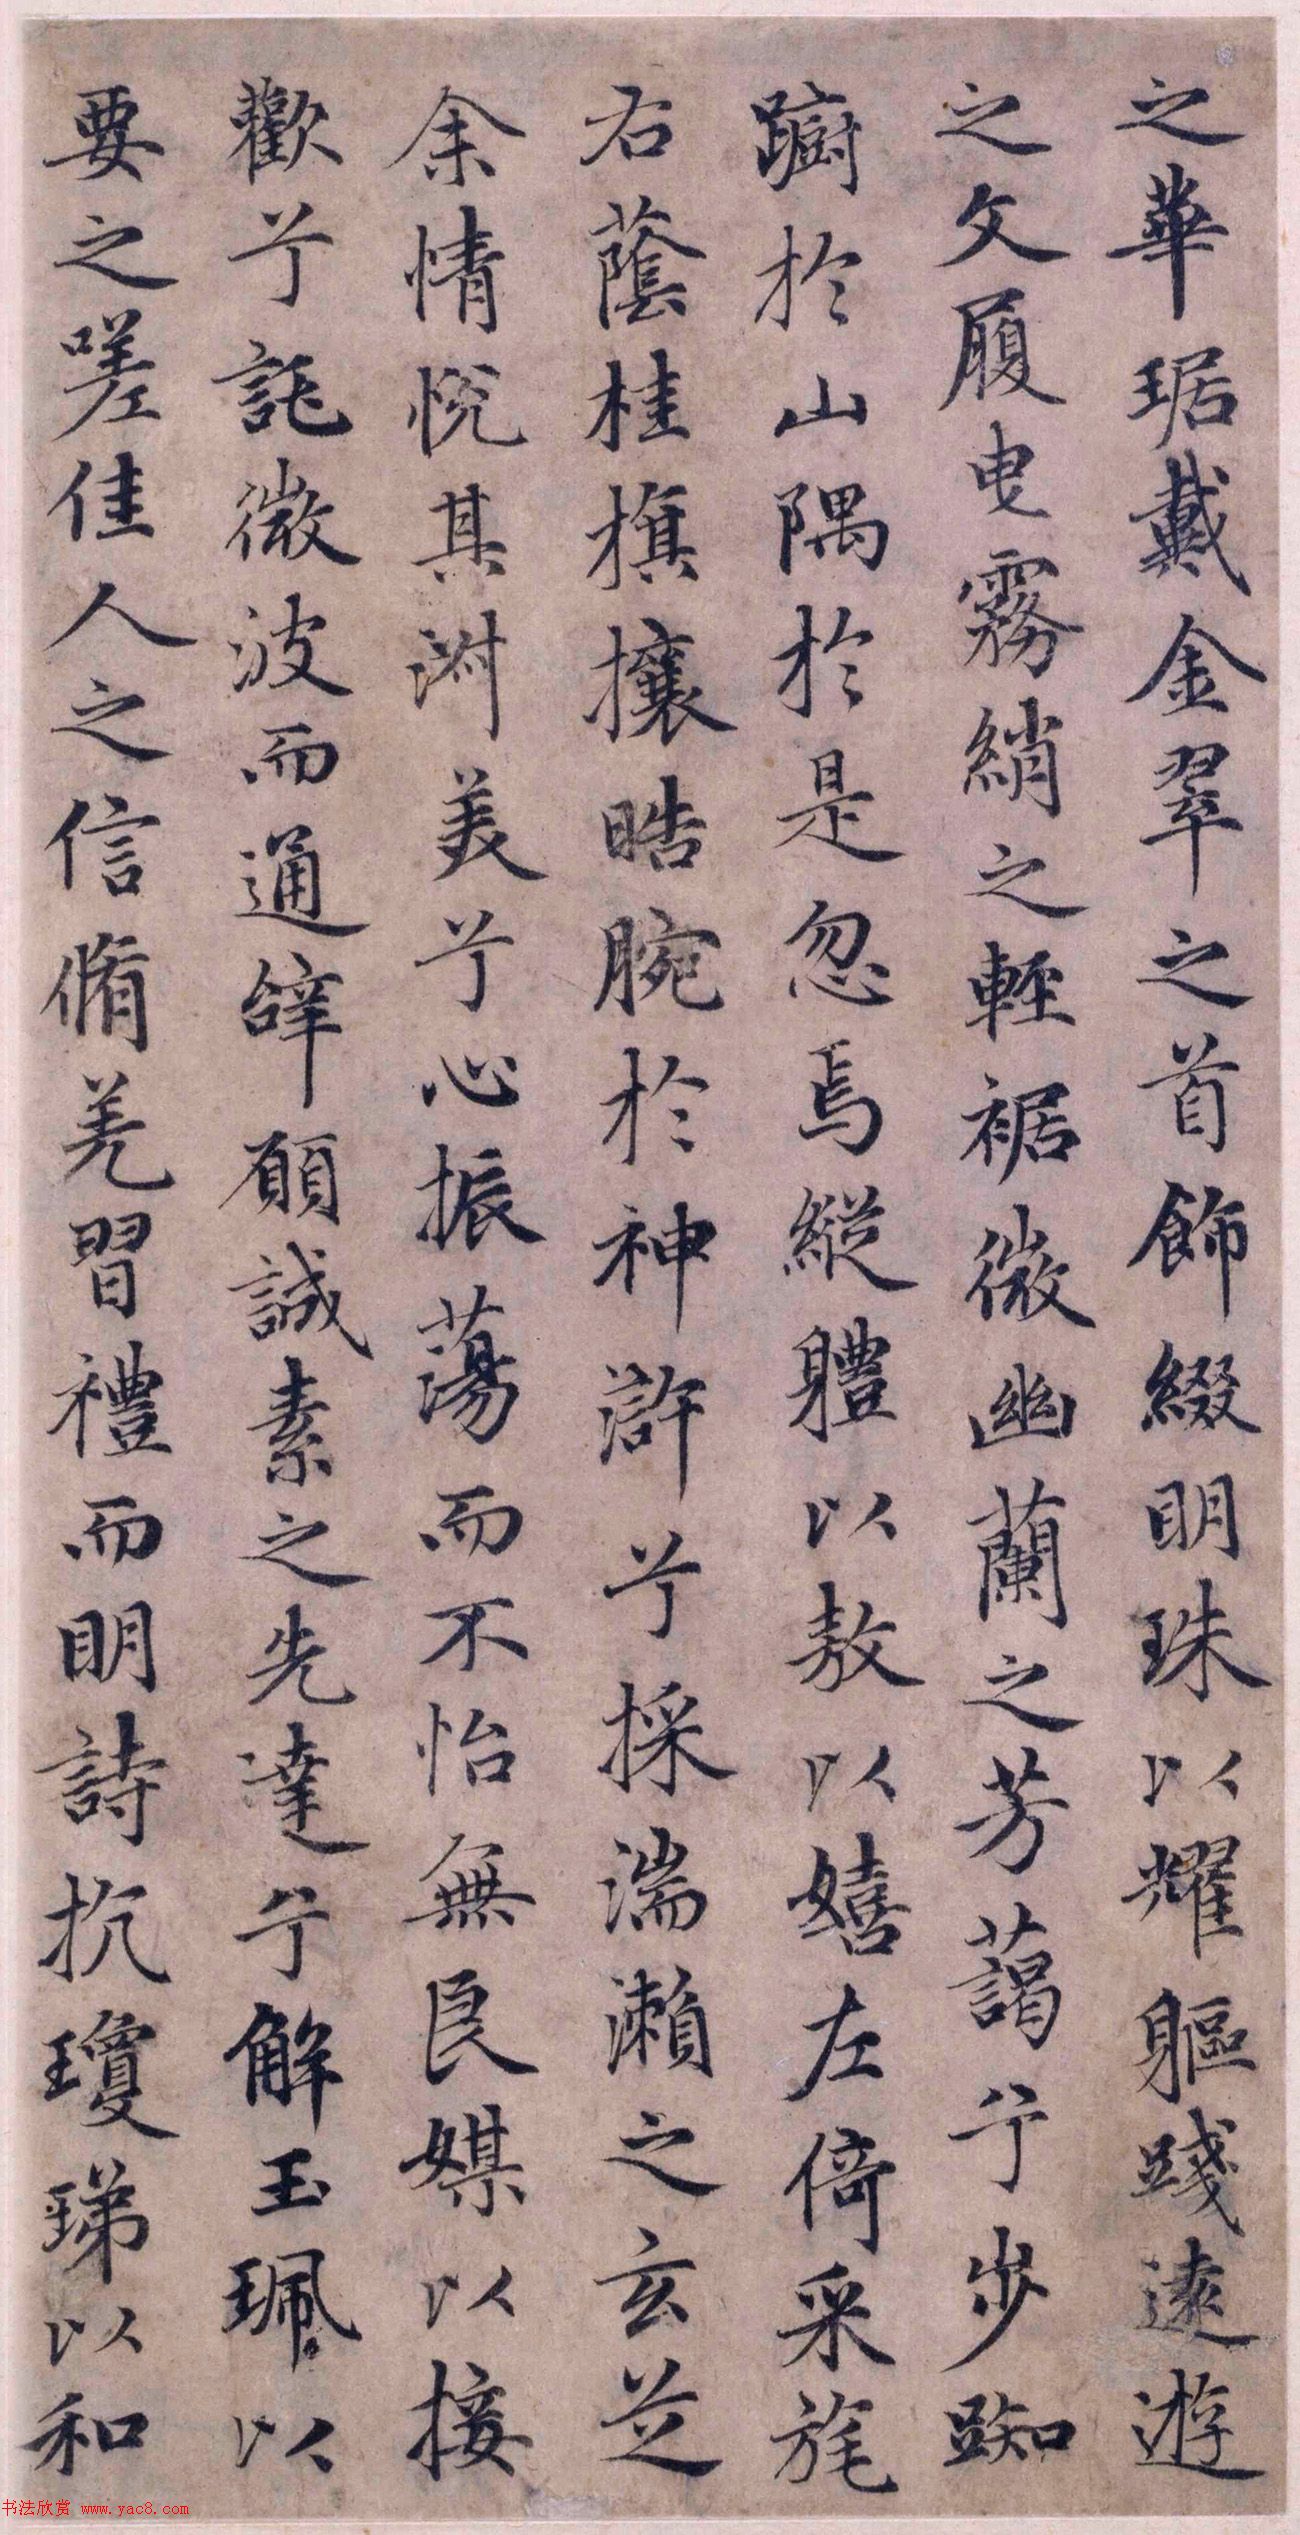 之華琚戴金翠之首飾綴明珠以耀軀踐遠遊
之文履曳霧綃之輕裾微幽蘭之芳藹兮步踟
躕於山隅於是忽焉縱軆以敖以嬉左倚采旄
右蔭桂旗攘晧腕於神滸兮採湍瀨之玄芝
余情悅其淑美兮心振蕩而不怡無良媒以接
歡兮託微波而通辭願誠素之先達兮解玉珮以
要之嗟佳人之信脩羌習禮而明詩抗瓊珶以和
书法欣赏 www.yac8.com